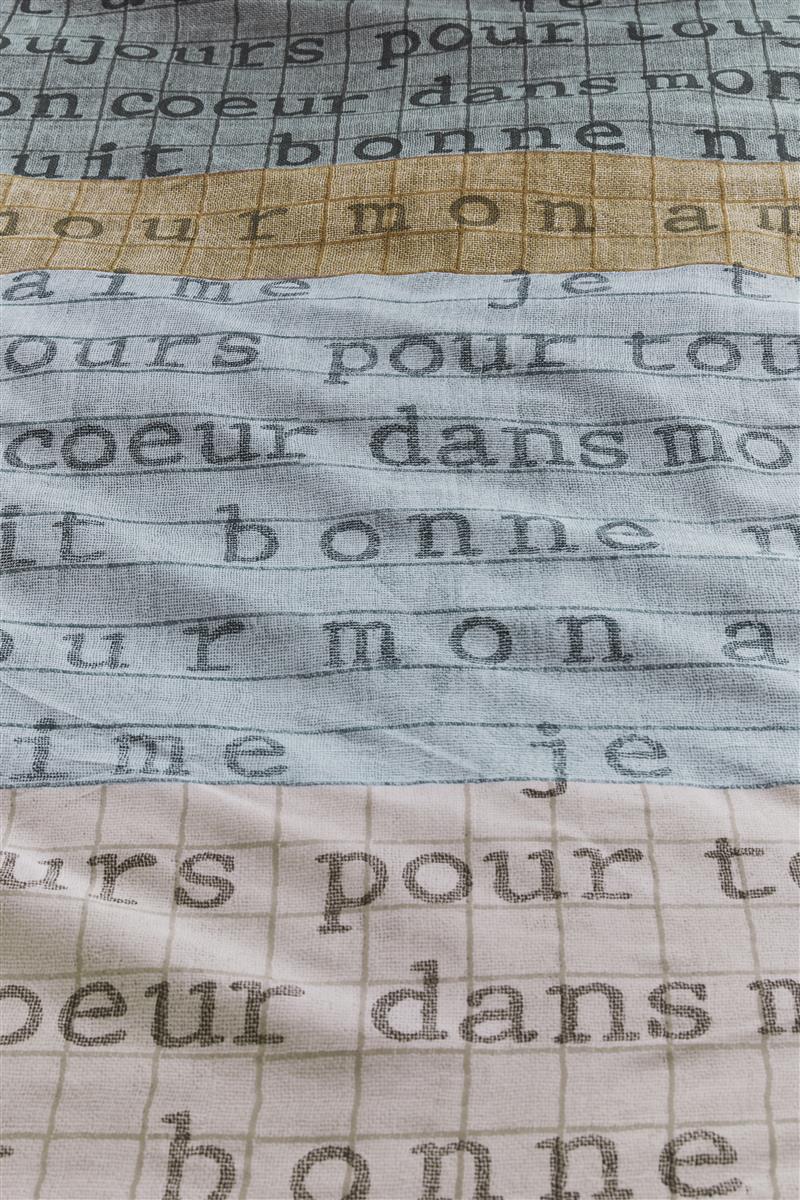 oujours pour touj
on coeur dans mon
uit bonne nu
mour mon am
aime je t
ours pour tou
coeur dans mo
it bonne n
our mon a
ime je
urs pour to
oeur dans m
bonne